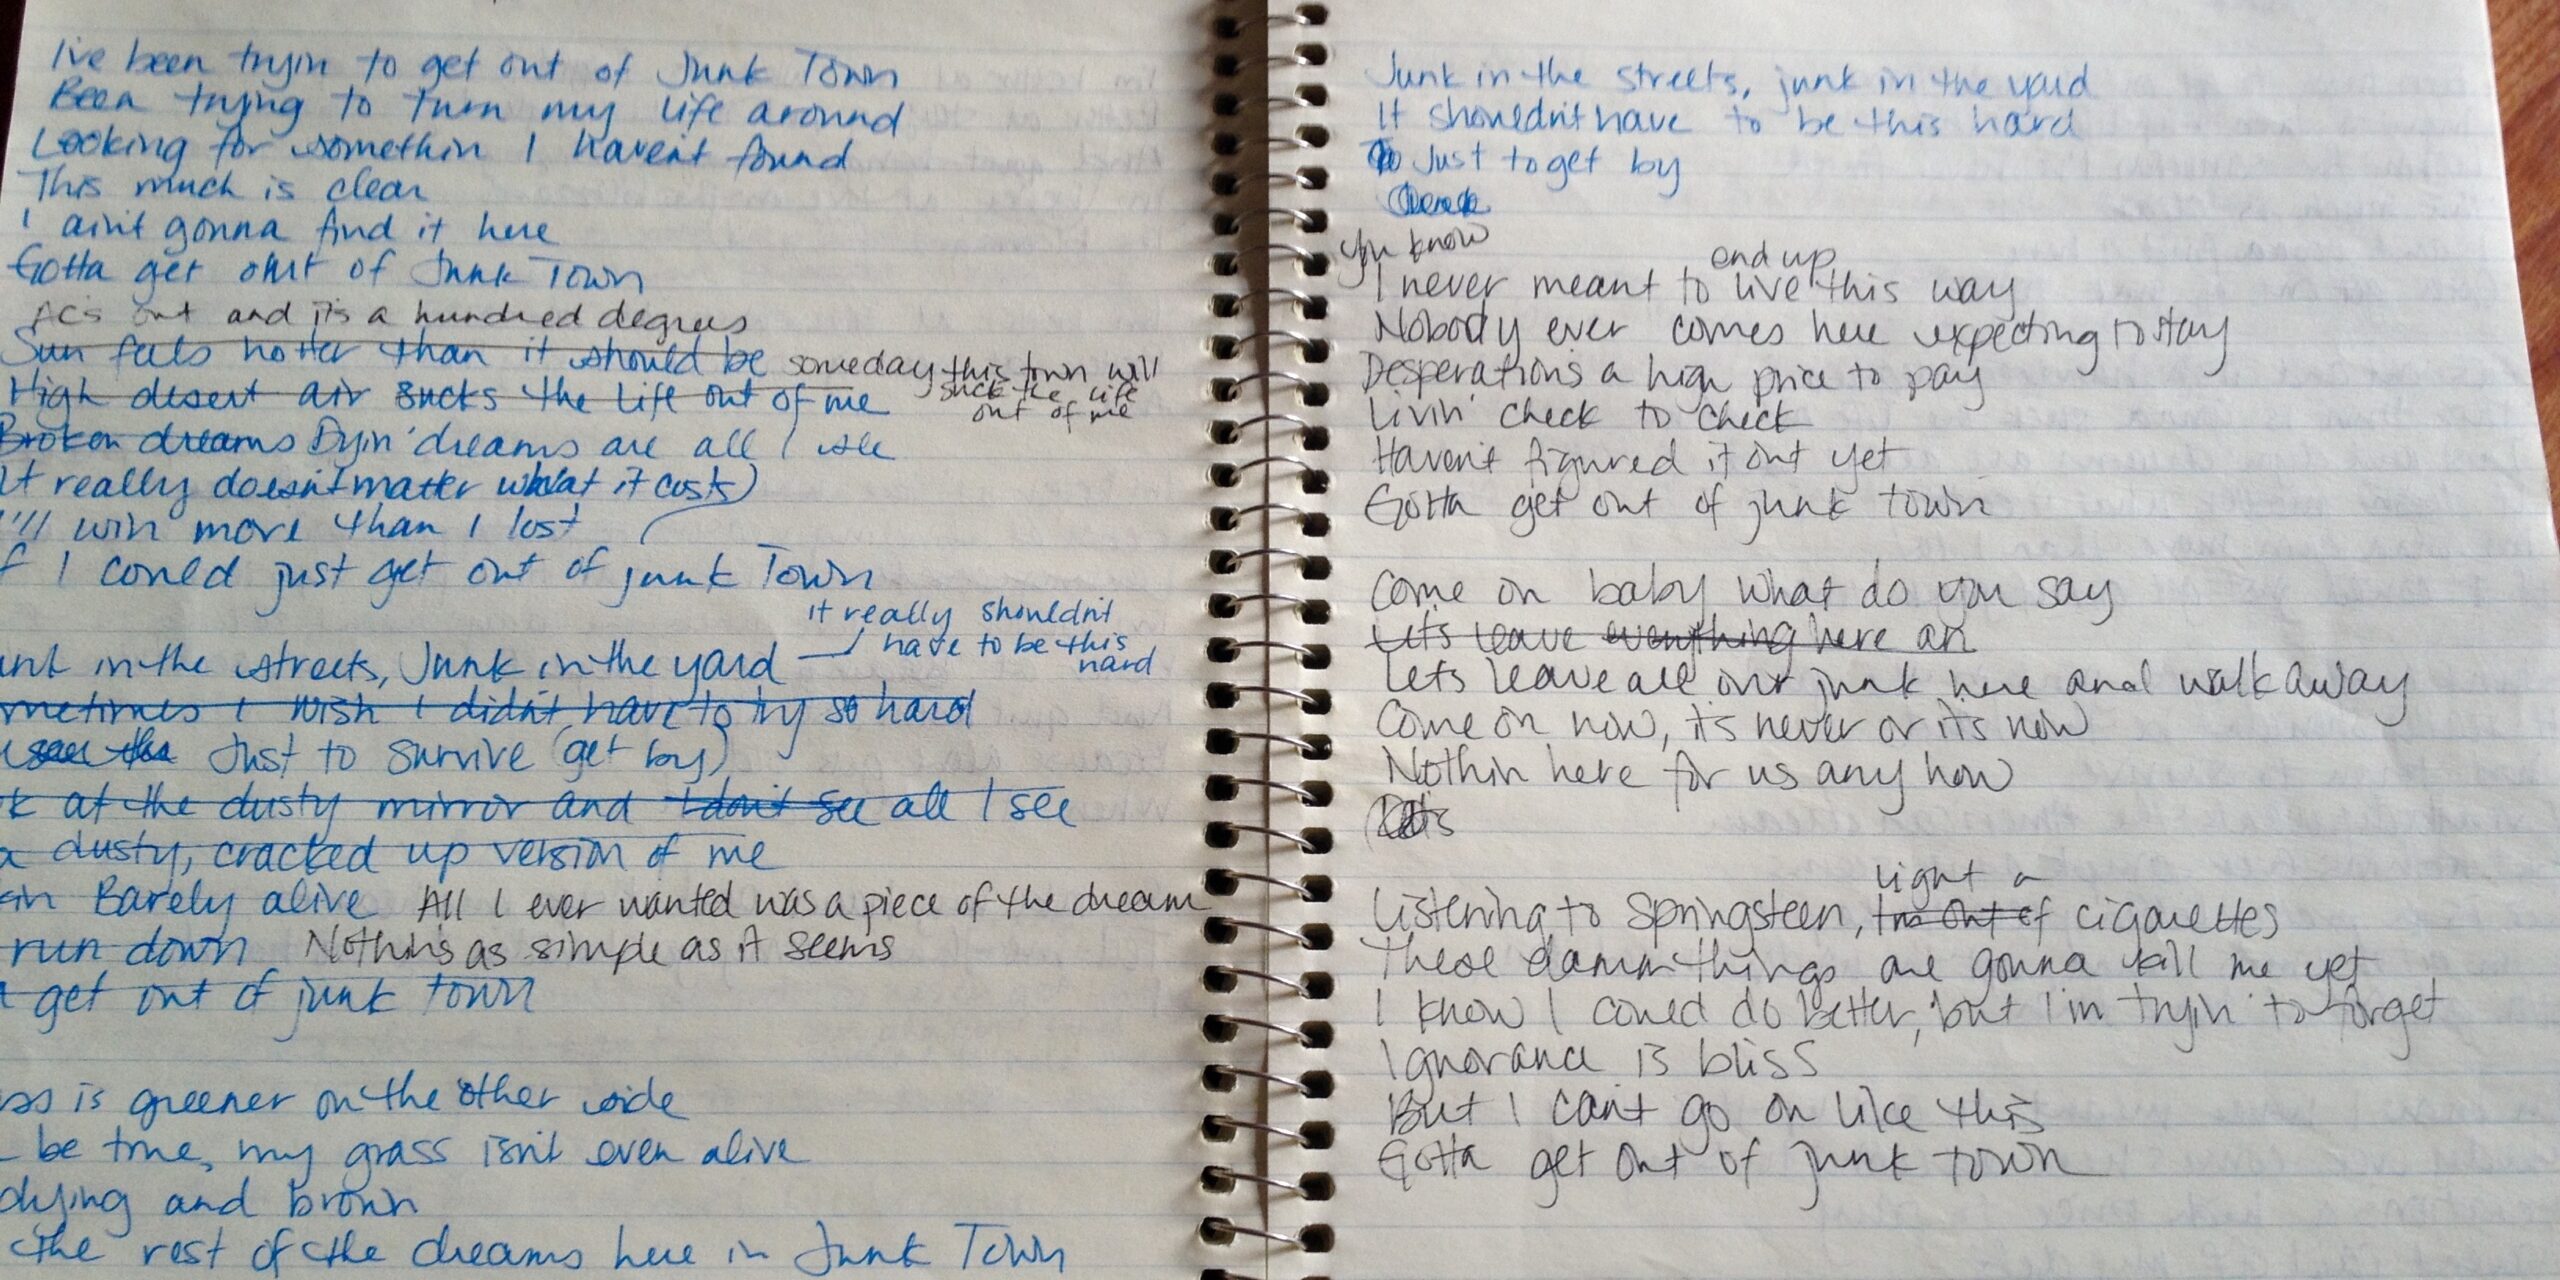 I've been tryin to get out of Junk Town
Been trying to turn my life around
Looking for somethin I havent found
This much is clear
I aint gonna find it here
Gotta get out of Junk Town
AC's out and its a hundred degrees
Sun feels hotter than it should be someday this town will
suck the life
out of me
High desert air sucks the life out of me
Broken dreams Dyin' dreams are all I see
It really doesn't matter what it costs)
I'll win more than I lost
f I could just get out of junk Town
it really shouldn't
have to be this
hard
unk in the streets, Junk in the yard
metimes I wish I didn't have to try so hard
see the Just to survive (get by)
k at the dusty mirror and I don't see all I see
a dusty, cracked up version of me
in Barely alive All I ever wanted was a piece of the dream
run down Nothins as simple as it seems
get out of junk town
ss is greener on the other side
be true, my grass isn't even alive
dying and brown
the rest of the dreams here in Junk Town
Junk in the streets, junk in the yard
It shouldn't have to be this hard
To Just to get by
you know
end up
I never meant to live this way
Nobody ever comes here expecting to stay
Desperations a high price to pay
Livin' check to check
Haven't figured it out yet
Gotta get out of junk town
Come on baby what do you say
Let's leave everything here an
Lets leave all our junk here and walk away
Come on now, its never or its now
Nothin here for us any how
light a
Listening to Springsteen, I'm out of cigarettes
These damn things are gonna kill me yet
I know I could do better, but I'm tryin' to forget
Ignorance is bliss
But I can't go on like this
Gotta get out of junk town